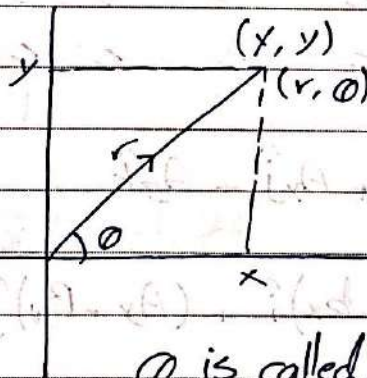 (x, y)
y
(r, Ø)
r
Ø
x
Ø is called